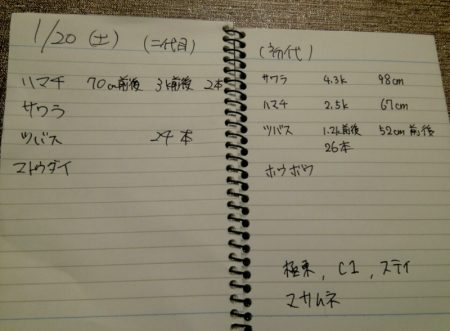 1/20(土) (二代目)
ハマチ 70cm前後 3k前後 2本
サワラ
ツバス 24本
マトウダイ
(初代)
サワラ 4.3k 98cm
ハマチ 2.5k 67cm
ツバス 1.2k前後 52cm前後
26本
ホウボウ
極東, C1, ステイ
マサムネ